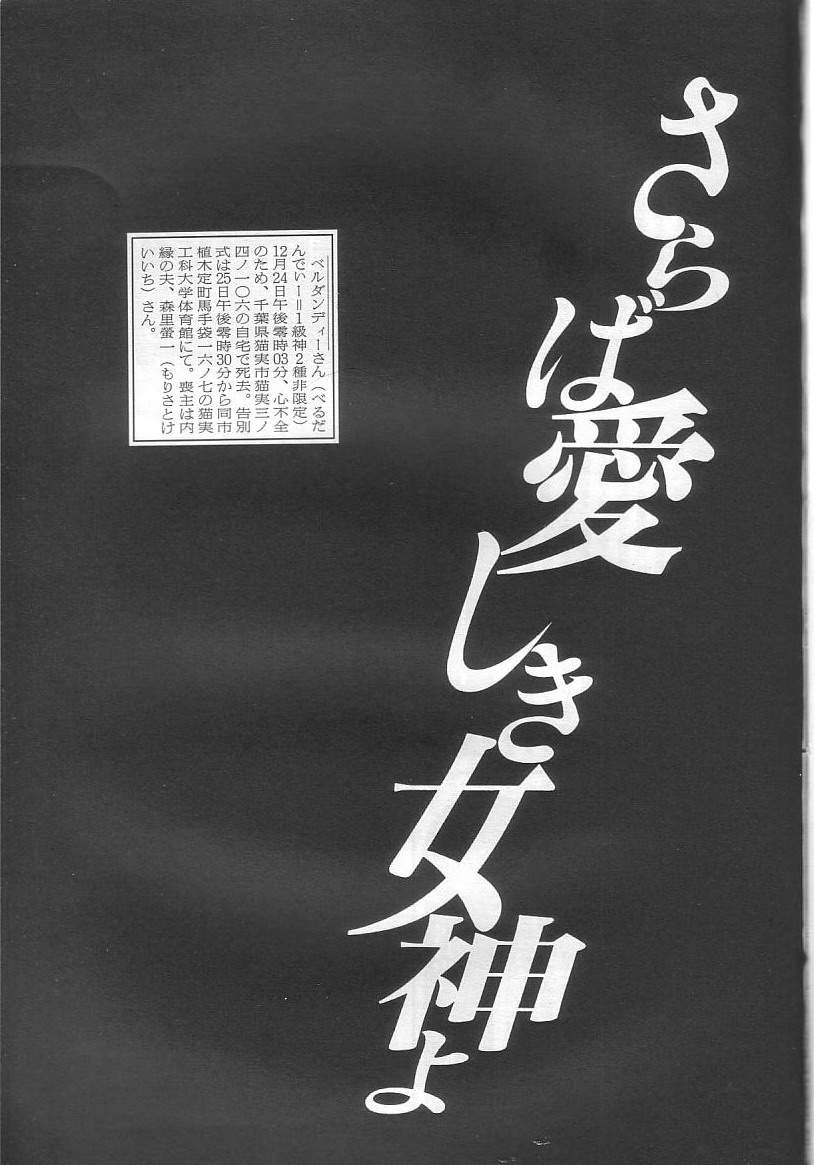 さらば愛しき女神よ
ベルダンディーさん（べるだ
んでぃー＝1級神2種非限定）
12月24日午後零時03分、心不全
のため、千葉県猫実市猫実三ノ
四ノ一〇六の自宅で死去。告別
式は25日午後零時30分から同市
植木定町馬手袋一六ノ七の猫実
工科大学体育館にて。喪主は内
縁の夫、森里螢一（もりさとけ
いいち）さん。